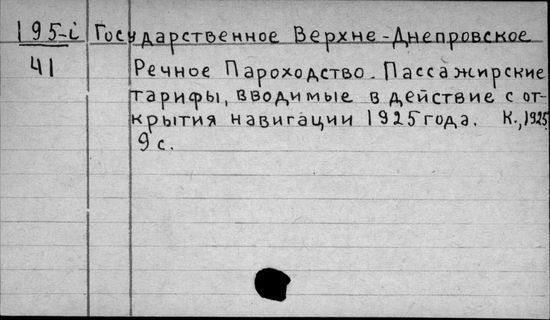 195-i Государственное Верхне-Днепровское
41 Речное Пароходство. Пассажирские
тарифы, вводимые в действие с от-
крытия навигации 1925 года. К., 1925
9 с.